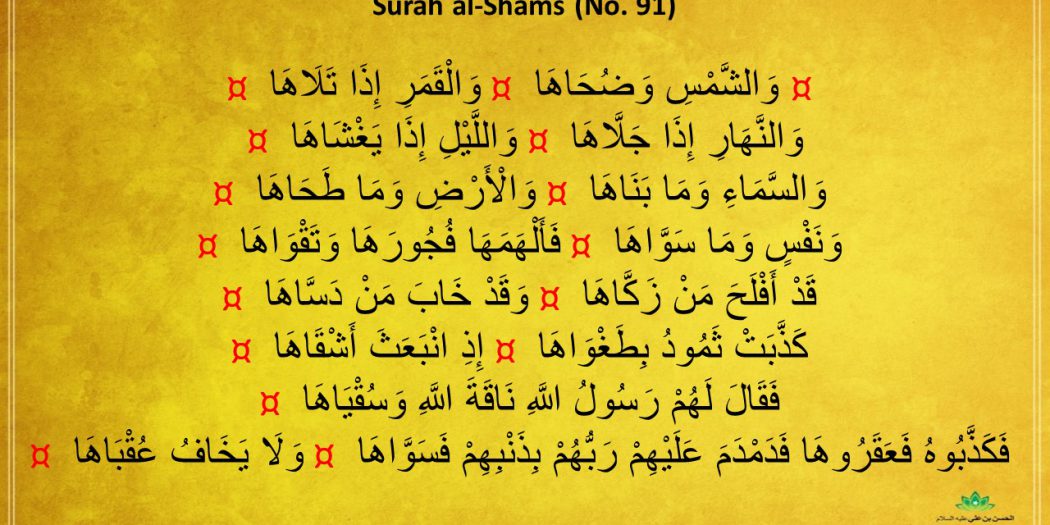 Surah al-Shams (No. 91)
¤ وَالشَّمْسِ وَضُحَاهَا ¤ وَالْقَمَرِ إِذَا تَلَاهَا ¤
وَالنَّهَارِ إِذَا جَلَّاهَا ¤ وَاللَّيْلِ إِذَا يَغْشَاهَا ¤
وَالسَّمَاءِ وَمَا بَنَاهَا ¤ وَالْأَرْضِ وَمَا طَحَاهَا ¤
وَنَفْسٍ وَمَا سَوَّاهَا ¤ فَأَلْهَمَهَا فُجُورَهَا وَتَقْوَاهَا ¤
قَدْ أَفْلَحَ مَنْ زَكَّاهَا ¤ وَقَدْ خَابَ مَنْ دَسَّاهَا ¤
كَذَّبَتْ ثَمُودُ بِطَغْوَاهَا ¤ إِذِ انْبَعَثَ أَشْقَاهَا ¤
فَقَالَ لَهُمْ رَسُولُ اللَّهِ نَاقَةَ اللَّهِ وَسُقْيَاهَا ¤
فَكَذَّبُوهُ فَعَقَرُوهَا فَدَمْدَمَ عَلَيْهِمْ رَبُّهُمْ بِذَنْبِهِمْ فَسَوَّاهَا ¤ وَلَا يَخَافُ عُقْبَاهَا ¤
الحسن بن علي عليه السلام